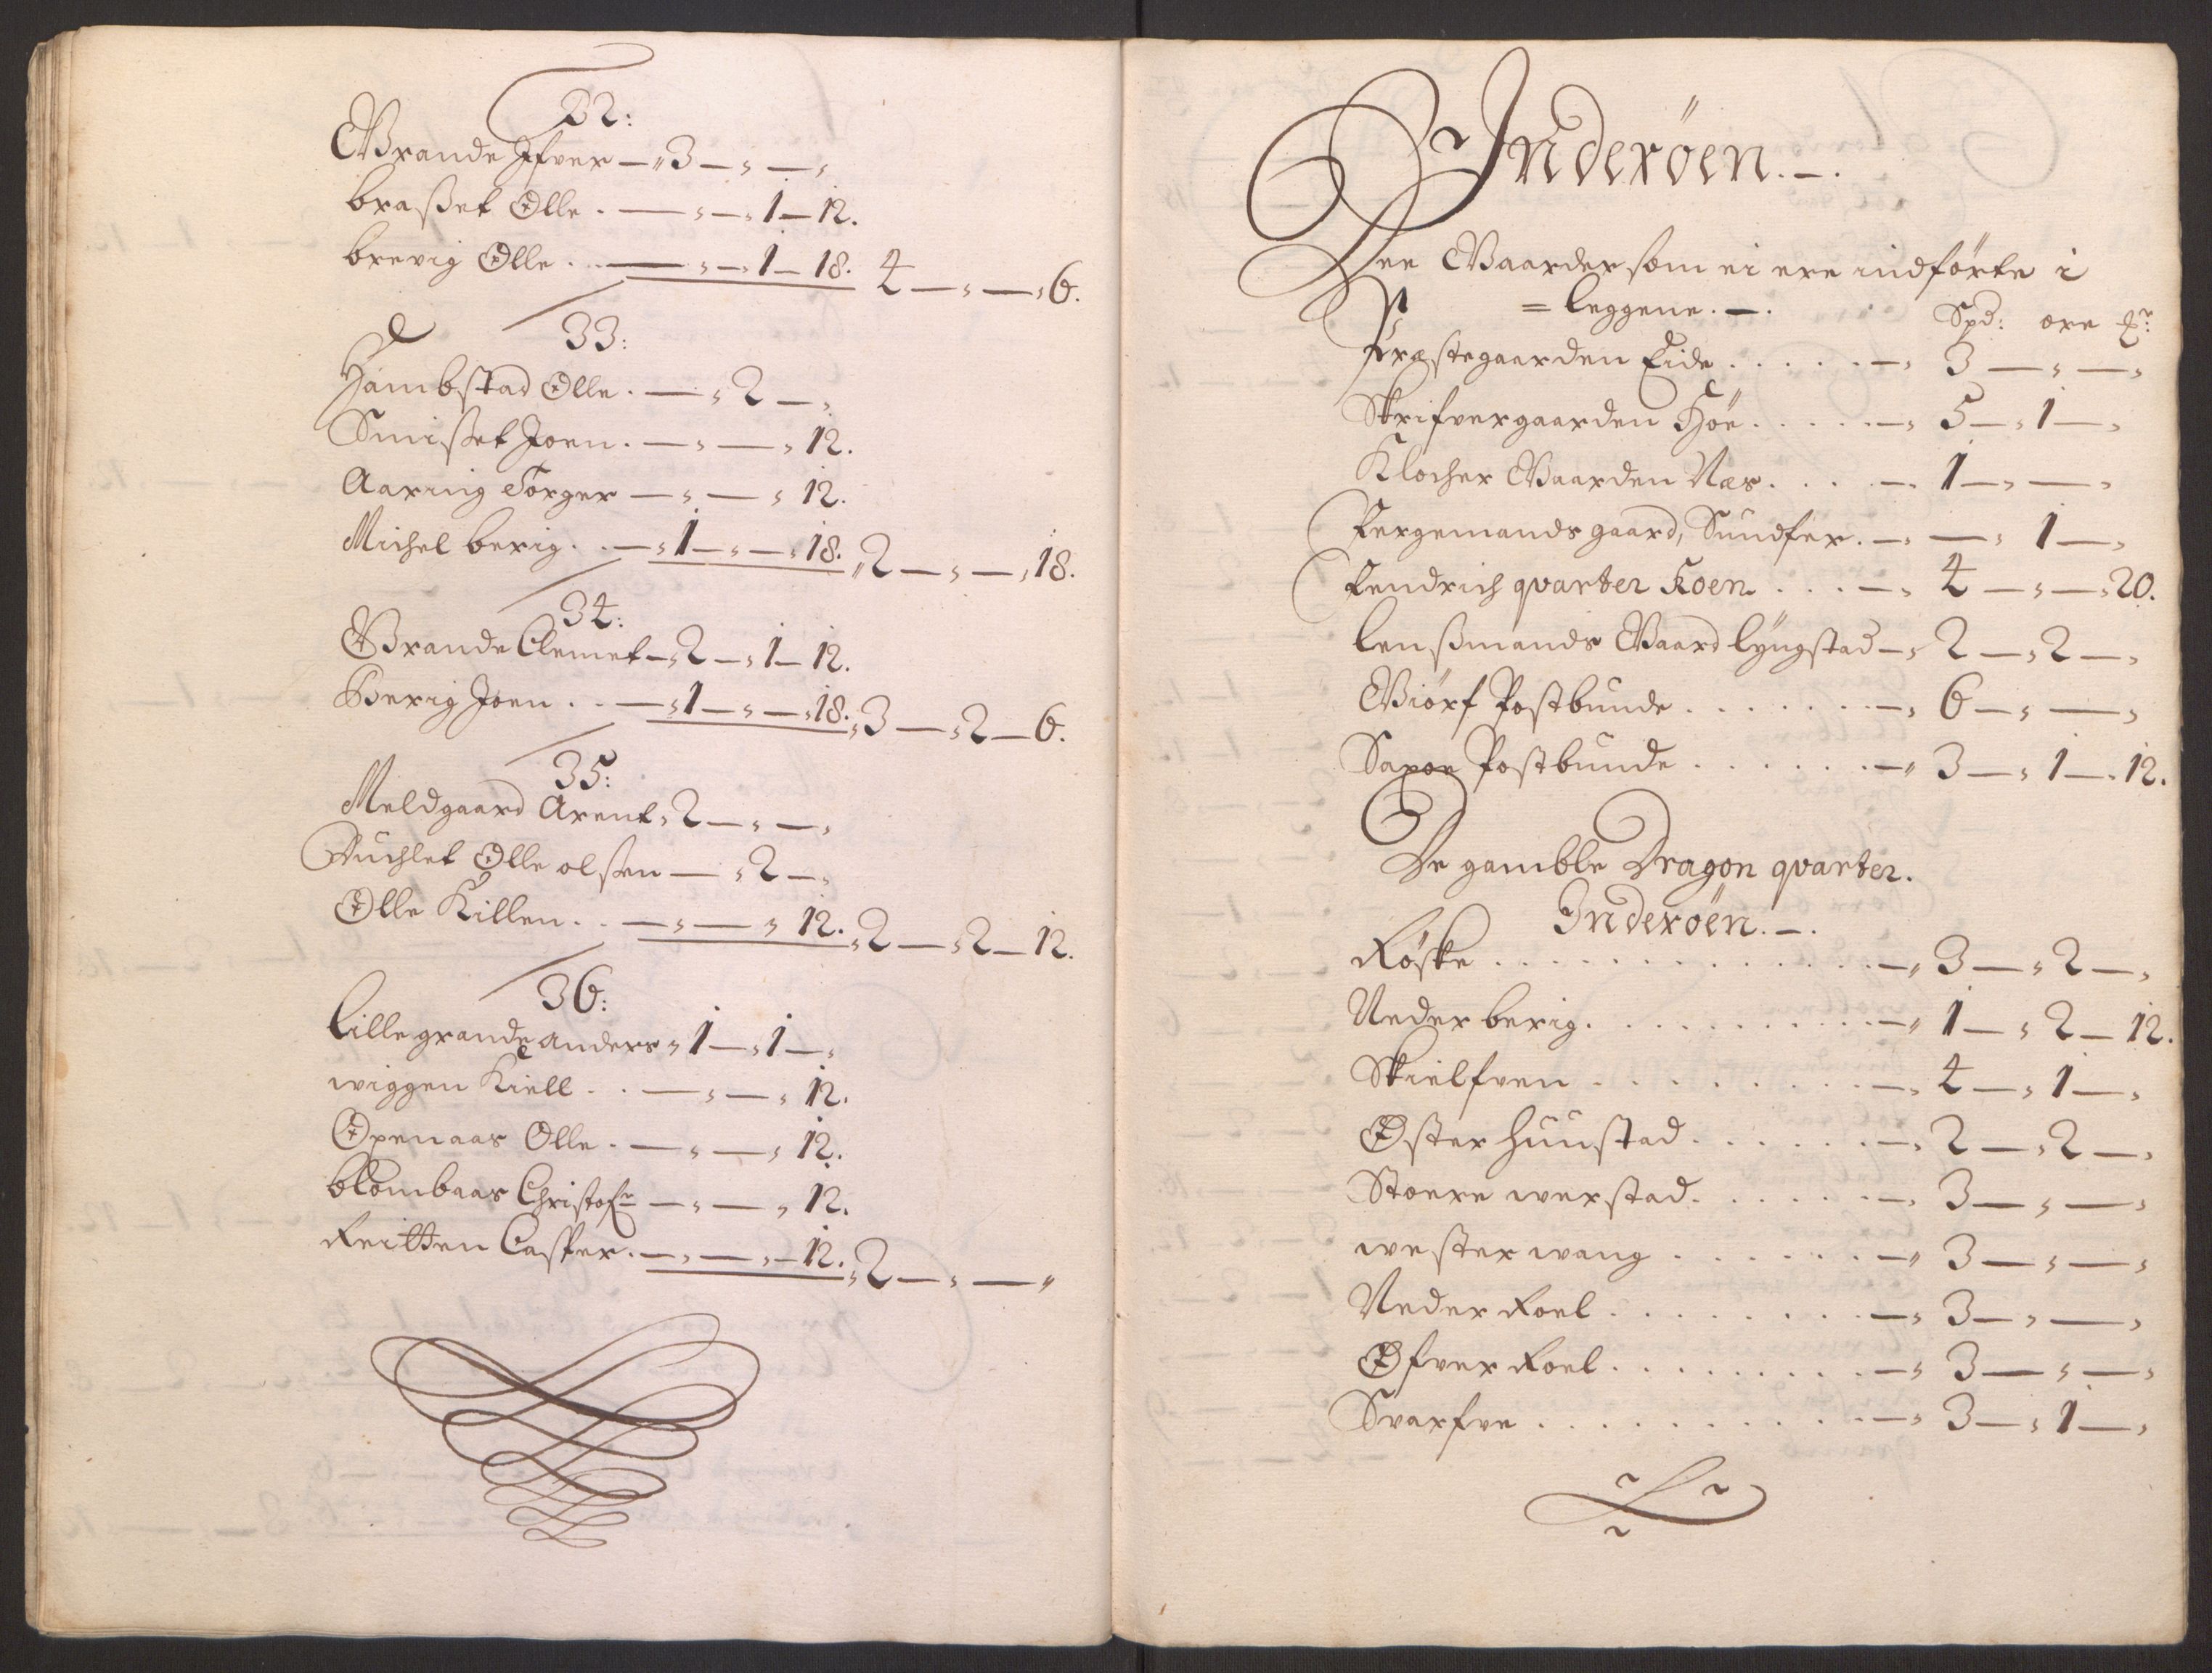 32:
Grande Ifver — „ 3 — „ — „
braßet Olle . — „ — „ 1 — 12.
brevig Olle . . — „ — „ 1 — 18. 4 — „ — „ 6.
33:
Hambstad Olle . — „ 2 — „
Smißet Joen . — „ — „ 12.
Aaring Torger — „ — „ 12.
Michel berig . . — „ 1 — „ — „ 18. „ 2 — „ — „ 18.
34:
Grande Clemet — „ 2 — „ 1 — 12.
Berig Joen . . — „ 1 — „ — „ 18. „ 3 — „ 2 — 6.
35:
Meldgaard Arent „ 2 — „ — „
Olle olßen — „ 2 — „
Olle Killen . . — „ — „ 12. „ 2 — „ 2 — 12.
36:
Lille grande anders „ 1 — „ 1 — „
wiggen Kiell . . — „ — „ 12.
Openaas Olle . — „ — „ 12.
blombaas Christofr — „ — „ 12.
Reitten Casper . — „ — „ — 12. „ 2 — „ — „
Inderöen . — .
Dee Gaarder som ei ere indförte i
= leggene . — .
Spd: öre
Præstegaarden Eide . . . . . — „ 3 — „ — „
Skrifvergaarden Höe . . . . . — „ 5 — „ 1 — „
Klocher Gaarden Næs . . . — . 1 — „ — „
Fergemands gaard, Sundfer . — „ — „ 1 — „
Fendrich qvarter Koen . . . . — „ 4 — „ — „ 20.
Lenßmands Gaard lÿngstad — „ 2 — „ 2 — „
Giörf Postbunde . . . . . . . — „ 6 — „ — „
Saxoe Postbunde . . . . . . — „ 3 — „ 1 — . 12.
De gamble Dragon qvarter.
Inderöen . — .
Röske . . . . . . . . . . . . — „ 3 — „ 2 — „
Neder berig . . . . . . . . . . — „ 1 — „ 2 — 12.
Skielfven . . . . . . . . . — „ 4 — „ 1 — „
Øster huustad . . . . . . — „ 2 — „ 2 — „
Stoere werstad . . . . . . — „ 3 — „ — „
wester wang . . . . . . . — „ 3 — „ — „
Neder Roel . . . . . . . . . — „ 3 — „ — „
Øfver Roel . . . . . . . . . — „ 3 — „ — „
Svarfve . . . . . . . . . . . — „ 3 — „ 1 — „